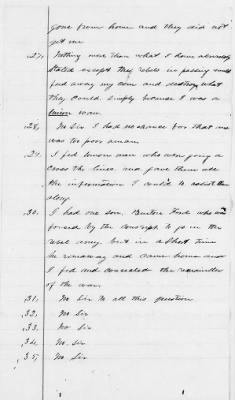 gone from home and they did not
get me
27, Nothing more than what I have already
stated except the rebels in passing would
feed away my corn and destroy what
they could simply because I was a
Union man.
28, No Sir I had no chance for that use
was too poor a man.
29, I fed Union men who were going a
cross the lines and gave them all
the information I could to assist them
along.
30, I had one son, Ford who was
forced by the conscript to go in the
rebel army but in a short time
he runaway and came home and
I fed and concealed the remainder
of the war.
31, No Sir to all this question
32, No Sir
33, No Sir
34, No Sir
35, No Sir